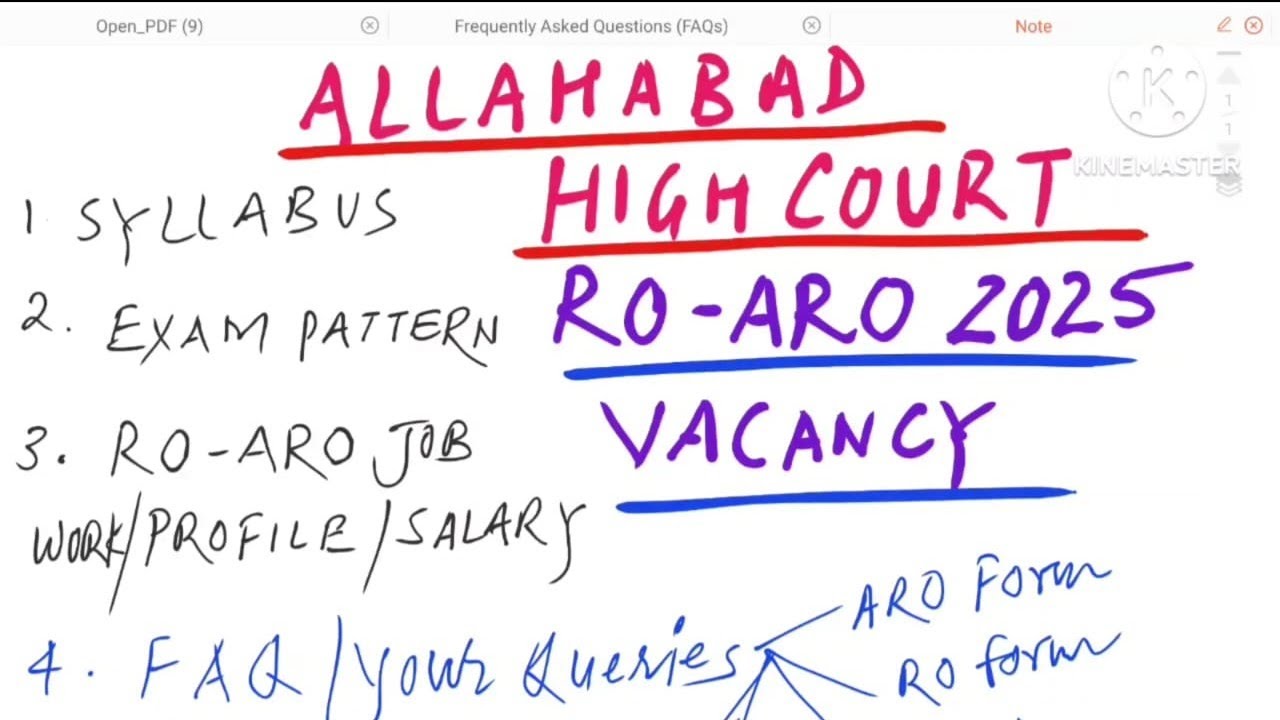 Open_PDF (9)
Frequently Asked Questions (FAQs)
Note
ALLAHABAD
HIGH COURT
RO-ARO 2025
VACANCY
1. SYLLABUS
2. EXAM PATTERN
3. RO-ARO JOB
WORK/PROFILE/SALARY
4. FAQ/your Queries
ARO Form
RO form
K
KINEMASTER
1
1